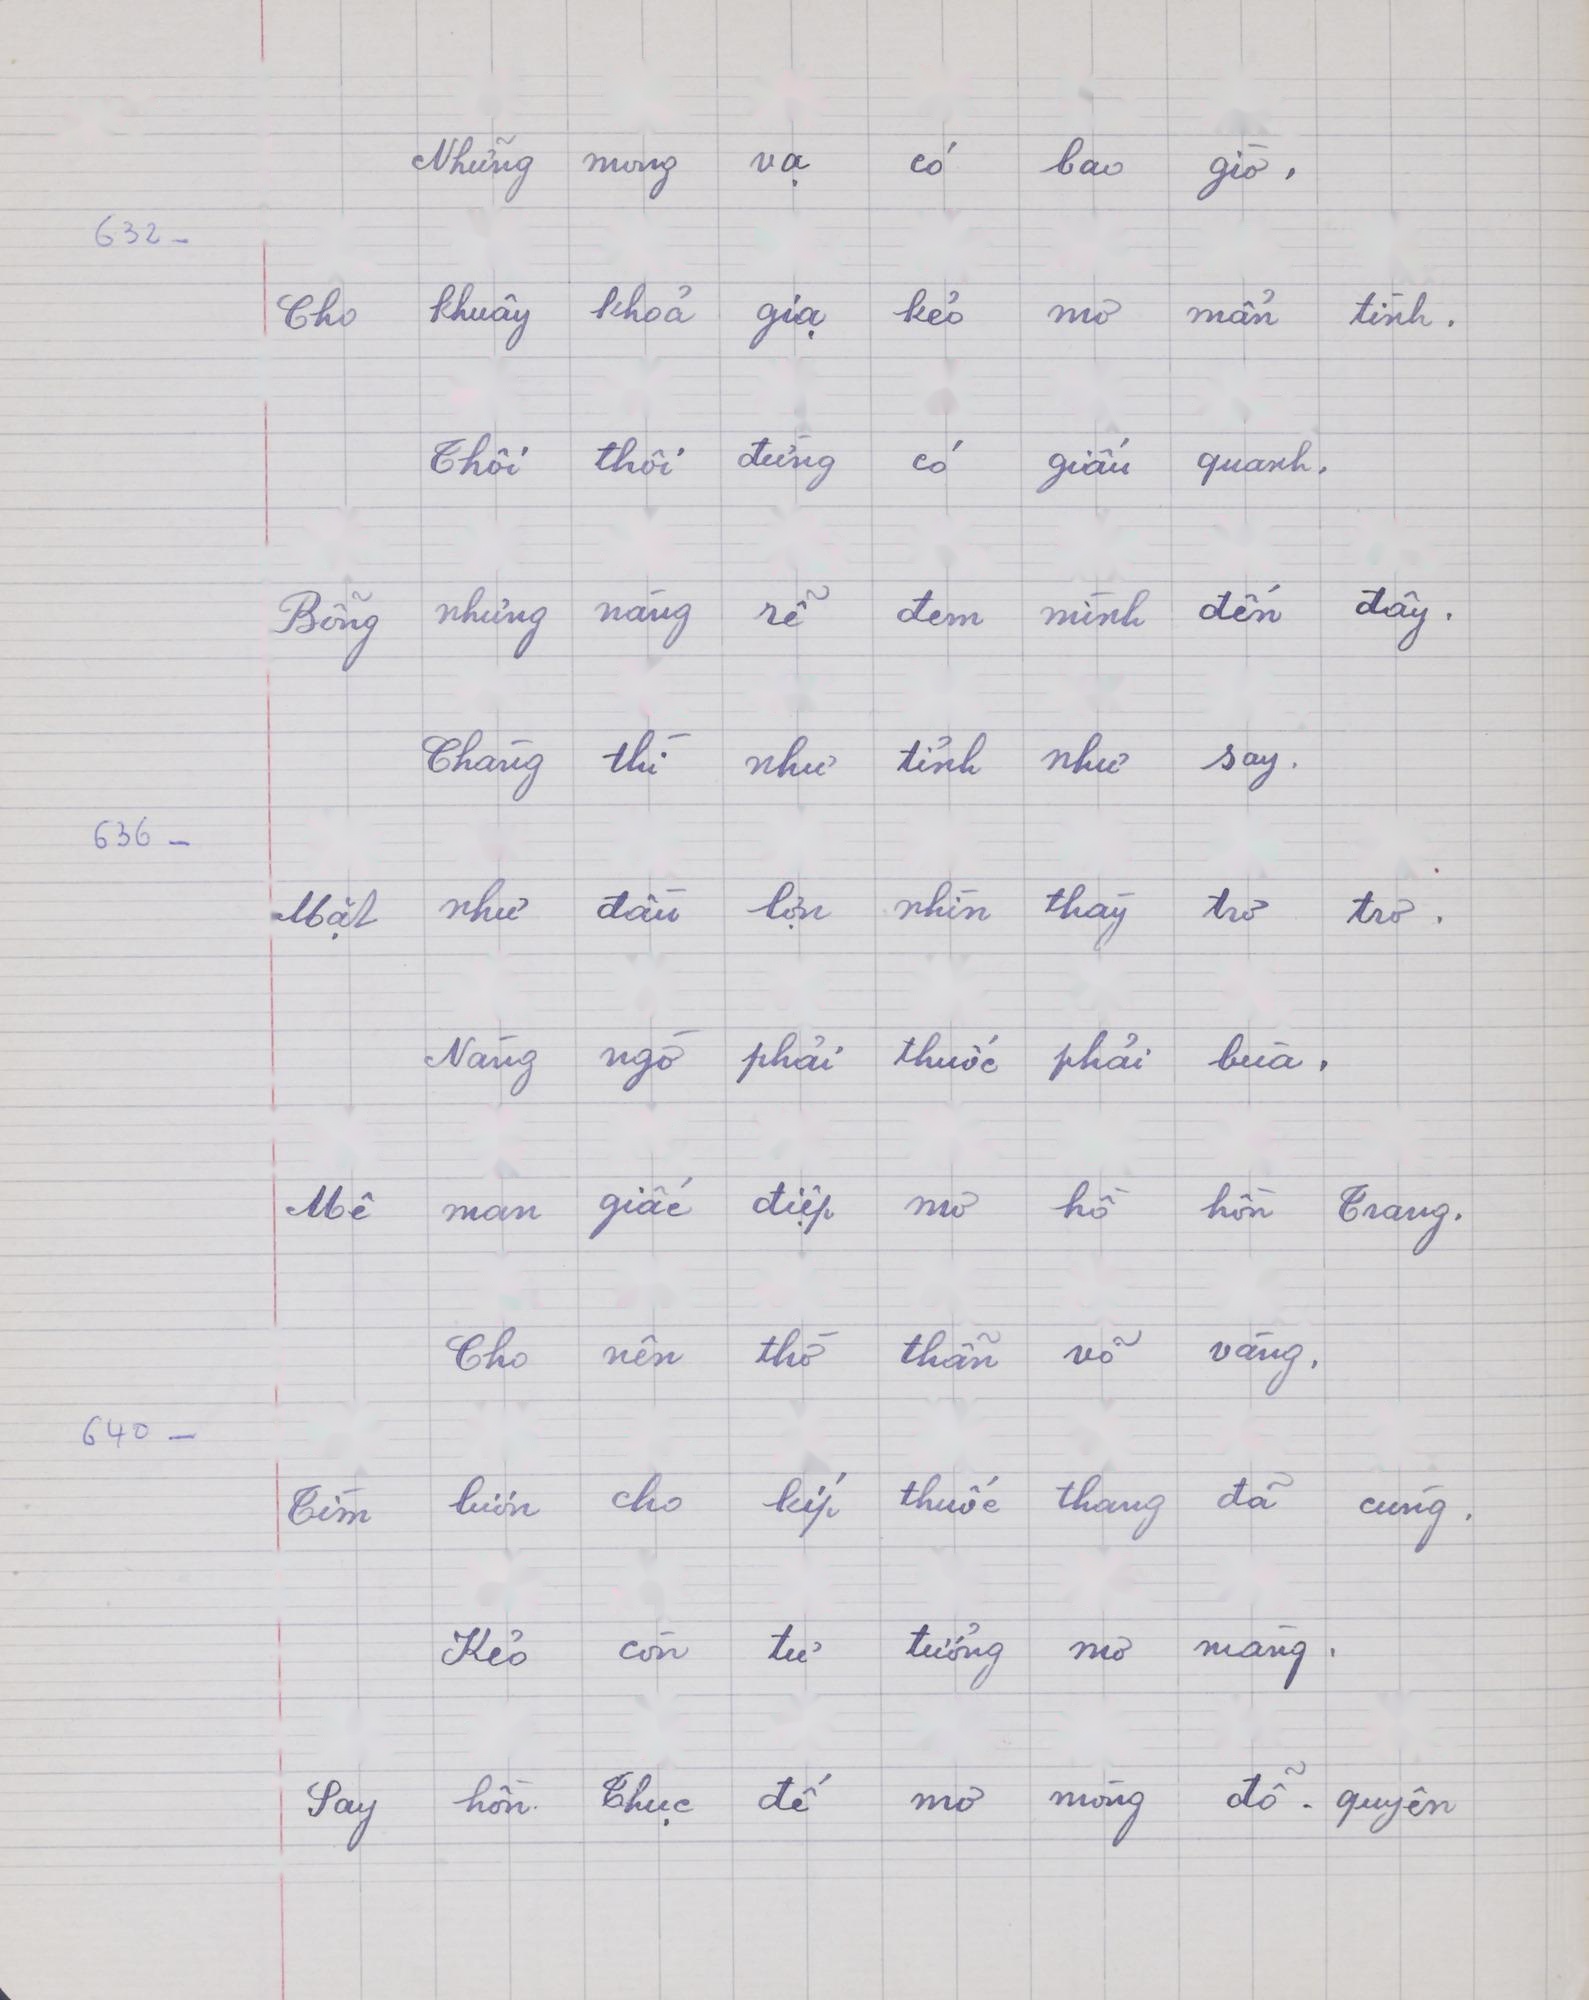 Những mong vạ có bao giờ,
632-
Cho khuây khoả giạ kẻo mơ mẩn tình.
Thôi thôi đừng có giấu quanh,
Bỗng nhưng nàng rễ đem mình đến đây.
Chàng thì như tỉnh như say.
636-
Mặt như đầu lợn nhìn thầy trơ trơ.
Nàng ngờ phải thuốc phải bùa,
Mê man giấc điệp mơ hồ hồn Trang.
Cho nên thờ thẫn võ vàng,
640-
Tìm luôn cho kíp thuốc thang đã cùng,
Kẻo còn tư tưởng mơ màng.
Say hồn Thục đế mơ mòng đỗ-quyên